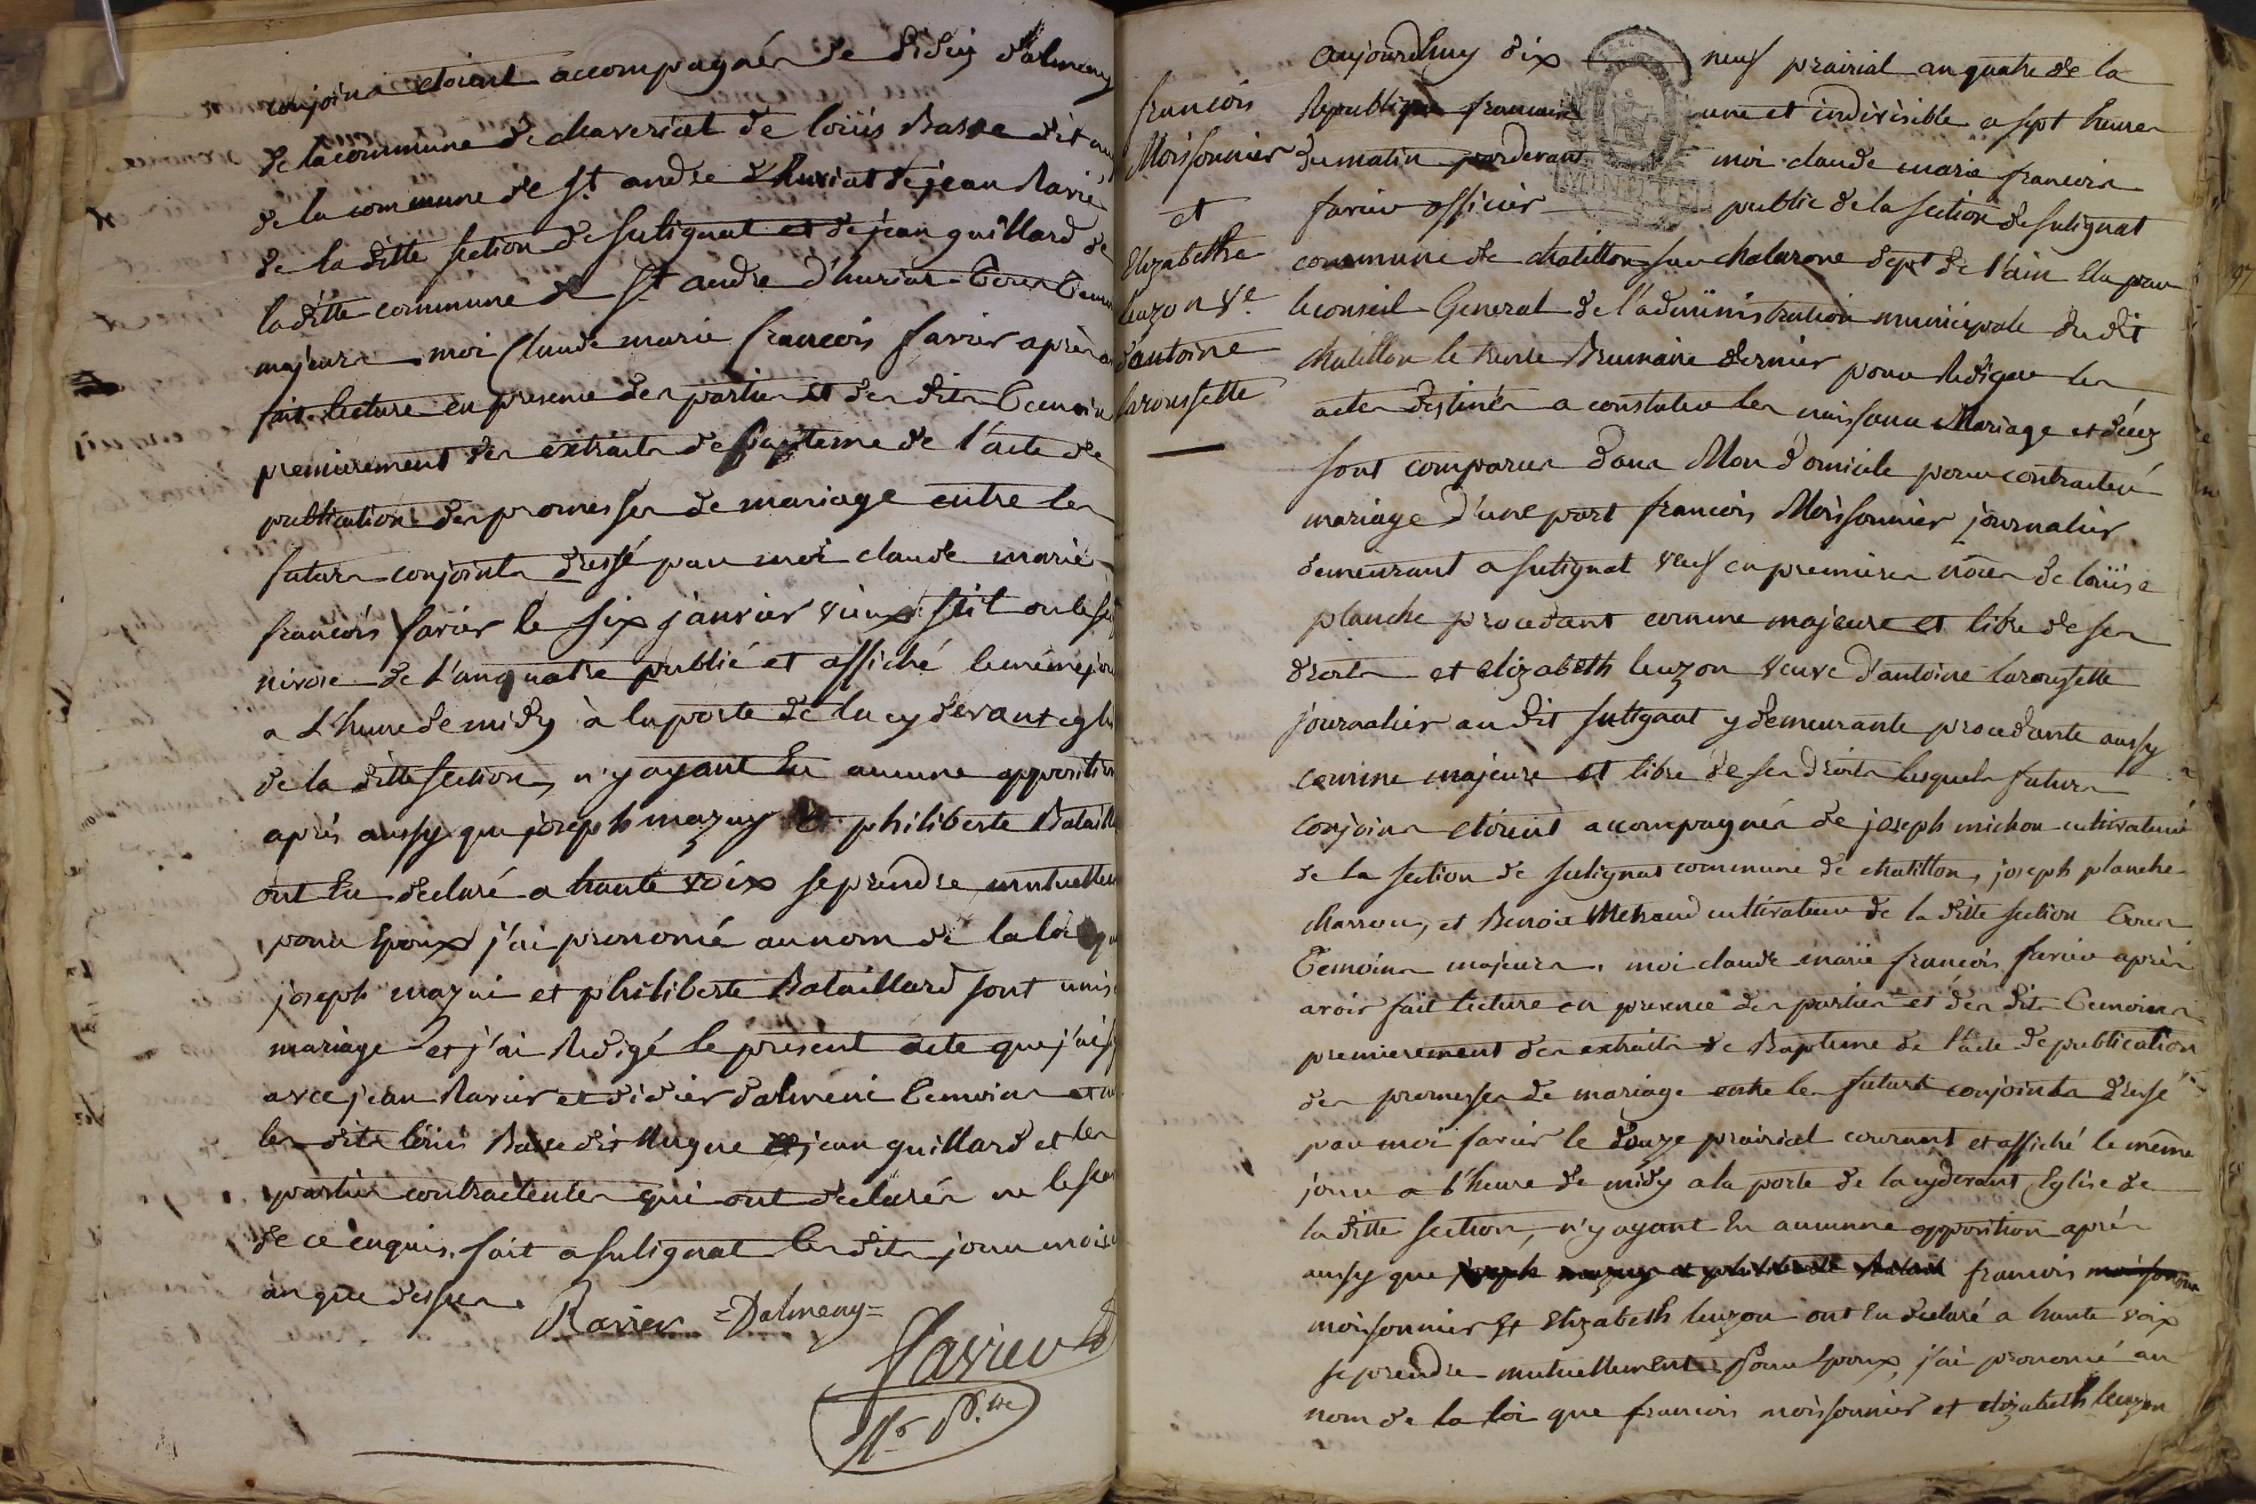 conjoins etoient accompagnés de didiy dalmeny
de la commune de chaveriat de loüis Basse dit
de la commune de St. andre d'huriat de jean Ravié
de la ditte section de sulignat et de jean guillard de
la ditte commune de St andre d'huriat Tous
majeurs. moi Claude marie francois favier après
fait lecture en presence des parties et des dits Temoins
premierement des extraits de Bapteme de l'acte de
publication des promesses de mariage entre les
futurs conjoints dressé par moi claude marie
francois favier le six janvier vieux stil ou le
nivose de l'an quatre publié et affiché le même jour
a L'heure de midy à la porte de la cy devant
de la ditte section, n'y ayant Eu aucune opposition
aprés aussy que joseph mazuy Et philiberte
ont Eu declaré a haute voix se prendre
pour Epoux j'ai prononcé au nom de la loi
joseph mazui et philiberte Bataillard sont unis
mariage et j'ai Redigé le present acte que j'ai
avec jean Ravier et didier dalmeni Temoins et
les dits loüis Basse dit Hugue et jean guillard et les
parties contractentes qui ont declarés ne le
de ce enquis. fait a sulignat les dits jour mois
an que dessus. Ravier =Dalmeny=
Favier
francois
Moissonnier
et
Elizabethe
leuzon Ve.
d'antoine
laroussette
aujourdhuy dix neuf prairial an quatre de la
Republique francaise une et indivisible a sept heures
du matin pardevant moi claude marie francois
favier officier public de la section de sulignat
commune de chatillon sur chalarone dept de l'ain Elu par
le conseil General de l'administration municipale du dit
chatillon le trente Brumaire dernier pour Rediger les
actes destinés a constater les naissance Mariage et décez
sont comparus dans Mon domicile pour contracter
mariage d'une part francois Moissonnier journalier
demeurant a sulignat veuf en premieres nôces de loüise
planche procedant comme majeure et libre de ses
droits et elizabeth leuzon veuve d'antoine laroussette
journalier au dit sulignat y demeurante procedante aussy
comme majeure et libre de ses droits lesquels futurs
conjoins etoient accompagnés de joseph michon cultivateur
de la section de sulignat commune de chatillon, joseph planche
charron, et Benoit Meraud cultivateur de la ditte section Tous
Temoins majeurs. moi claude marie francois favier après
avoir fait lecture en presence des parties et des dits Temoins
premierement des extraits de Bapteme de l'acte de publication
des promesses de mariage entre les futurs conjoints dressé
par moi favier le douze prairial courant et affiché le même
jour a l'heure de midy a la porte de la cydevant Eglise de
la ditte section, n'y ayant Eu aucunne opposition aprés
aussy que joseph mazuy et philiberte Batail francois moissonnier
moissonnier Et Elizabeth leuzon ont Eu declaré a haute voix
se prendre mutuellement pour Epoux, j'ai prononcé au
nom de la loi que francois moissonnier et elizabeth leuzon